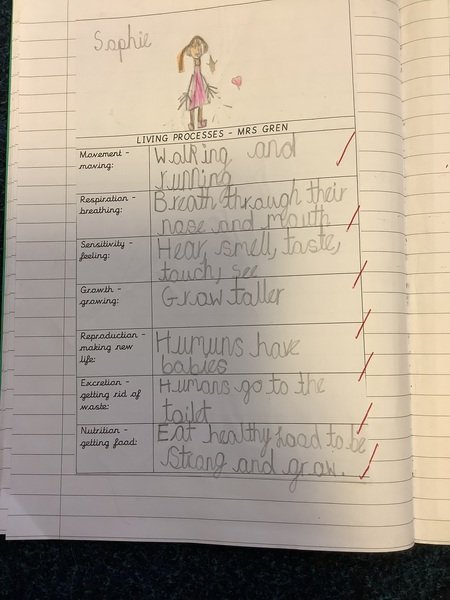 Sophie
LIVING PROCESSES - MRS GREN
Movement -
moving:
Walking and
running
Respiration -
breathing:
Breath through their
nose and mouth
Sensitivity -
feeling:
Hear, smell, taste,
touch, see
Growth -
growing:
Grow taller
Reproduction -
making new
life:
Humuns have
babies
Excretion -
getting rid of
waste:
Humans go to the
toilet
Nutrition -
getting food:
Eat healthy food to be
strong and grow.